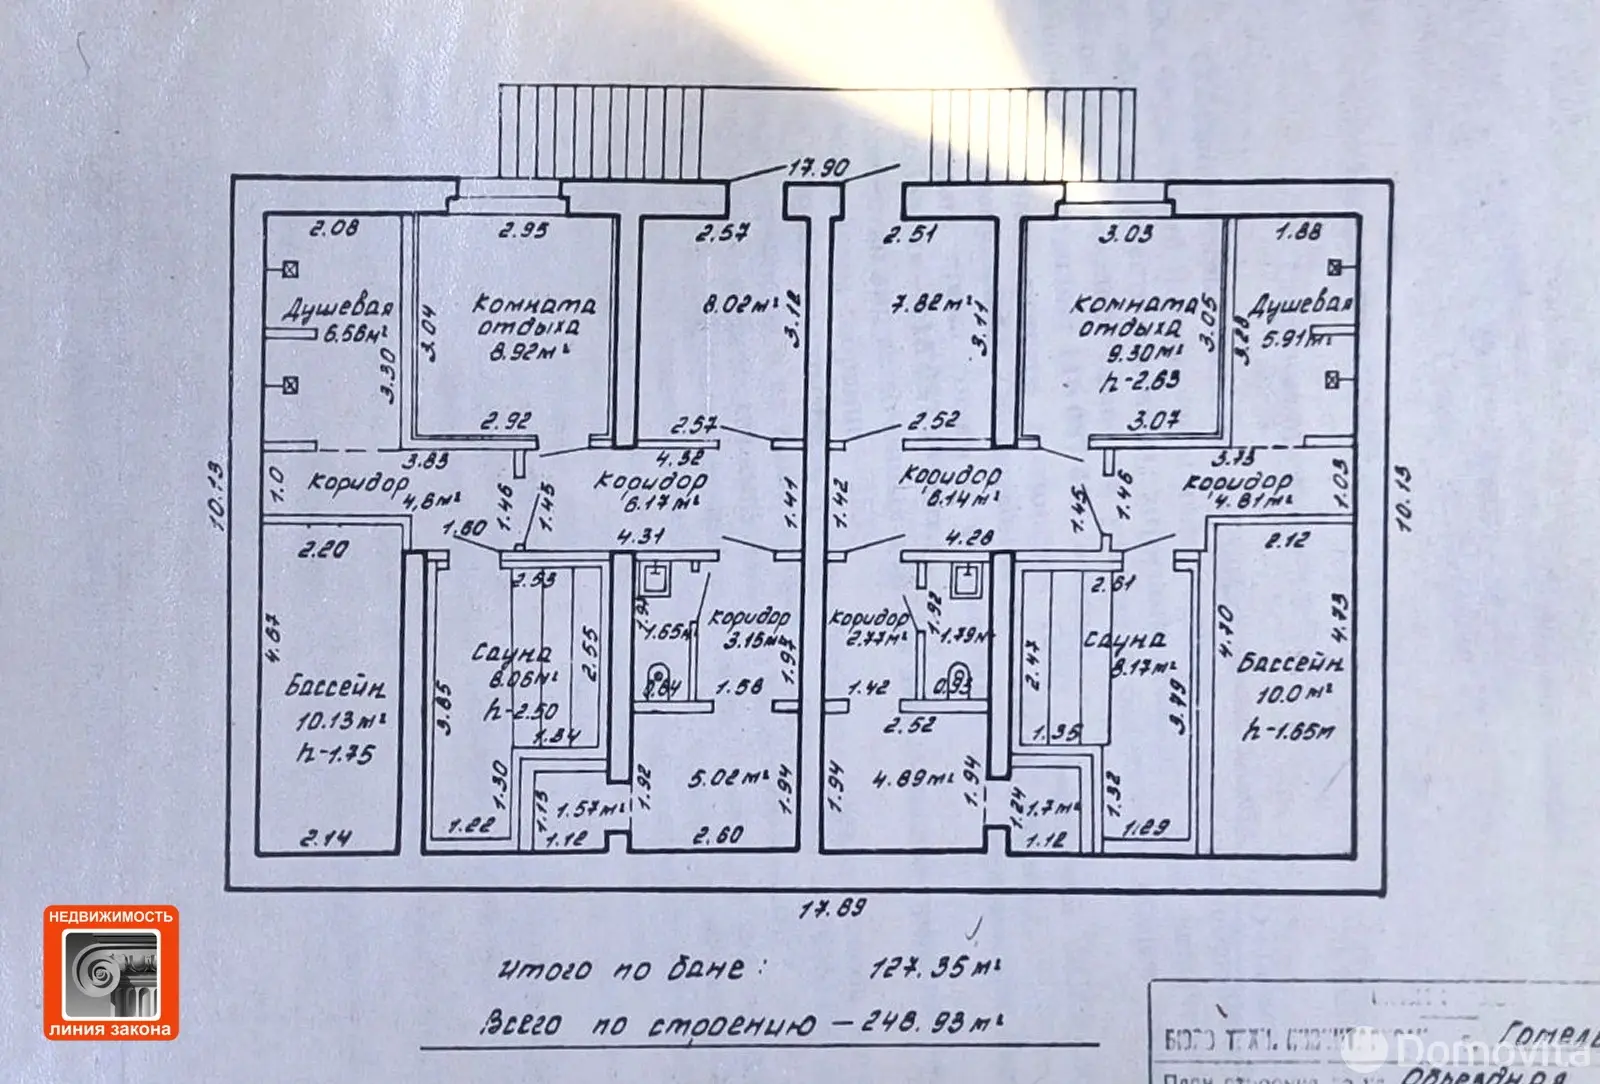 17.90
2.08
2.95
2.57
2.51
3.03
1.88
Душевая
6.56м²
3.30
3.04
Комната
отдыха
8.92м²
8.02м²
3.12
7.82м²
3.11
Комната
отдыха
9.30м²
h-2.63
3.05
3.28
Душевая
5.91м²
2.92
2.57
2.52
3.07
10.13
1.0
3.83
Коридор
4,8м²
1.46
1.45
4.32
Коридор
6.17м²
1.41
1.42
Коридор
6.14м²
1.45
1.46
3.73
Коридор
4.81м²
1.03
10.13
1.60
4.31
4.28
2.20
2.53
2.61
2.12
4.67
Бассейн
10.13м²
h-1.75
2.14
3.85
Сауна
8.06м²
h-2.50
2.55
1.34
1.30
1.22
1.13
1.57м²
1.12
1.65м²
0.84
Коридор
3.15м²
1.97
1.58
1.92
5.02м²
1.94
2.60
Коридор
2.77м²
1.92
1.79м²
1.42
0.93
2.52
1.94
4.89м²
1.94
2.47
Сауна
8.17м²
3.79
1.35
1.24
1.7м²
1.12
1.32
1.29
4.70
4.73
Бассейн
10.0м²
h-1.65м
17.89
Итого по бане: 127.35м²
Всего по строению – 248.93м²
НЕДВИЖИМОСТЬ
ЛИНИЯ ЗАКОНА
БЮРО ТЕХН.
Domovita